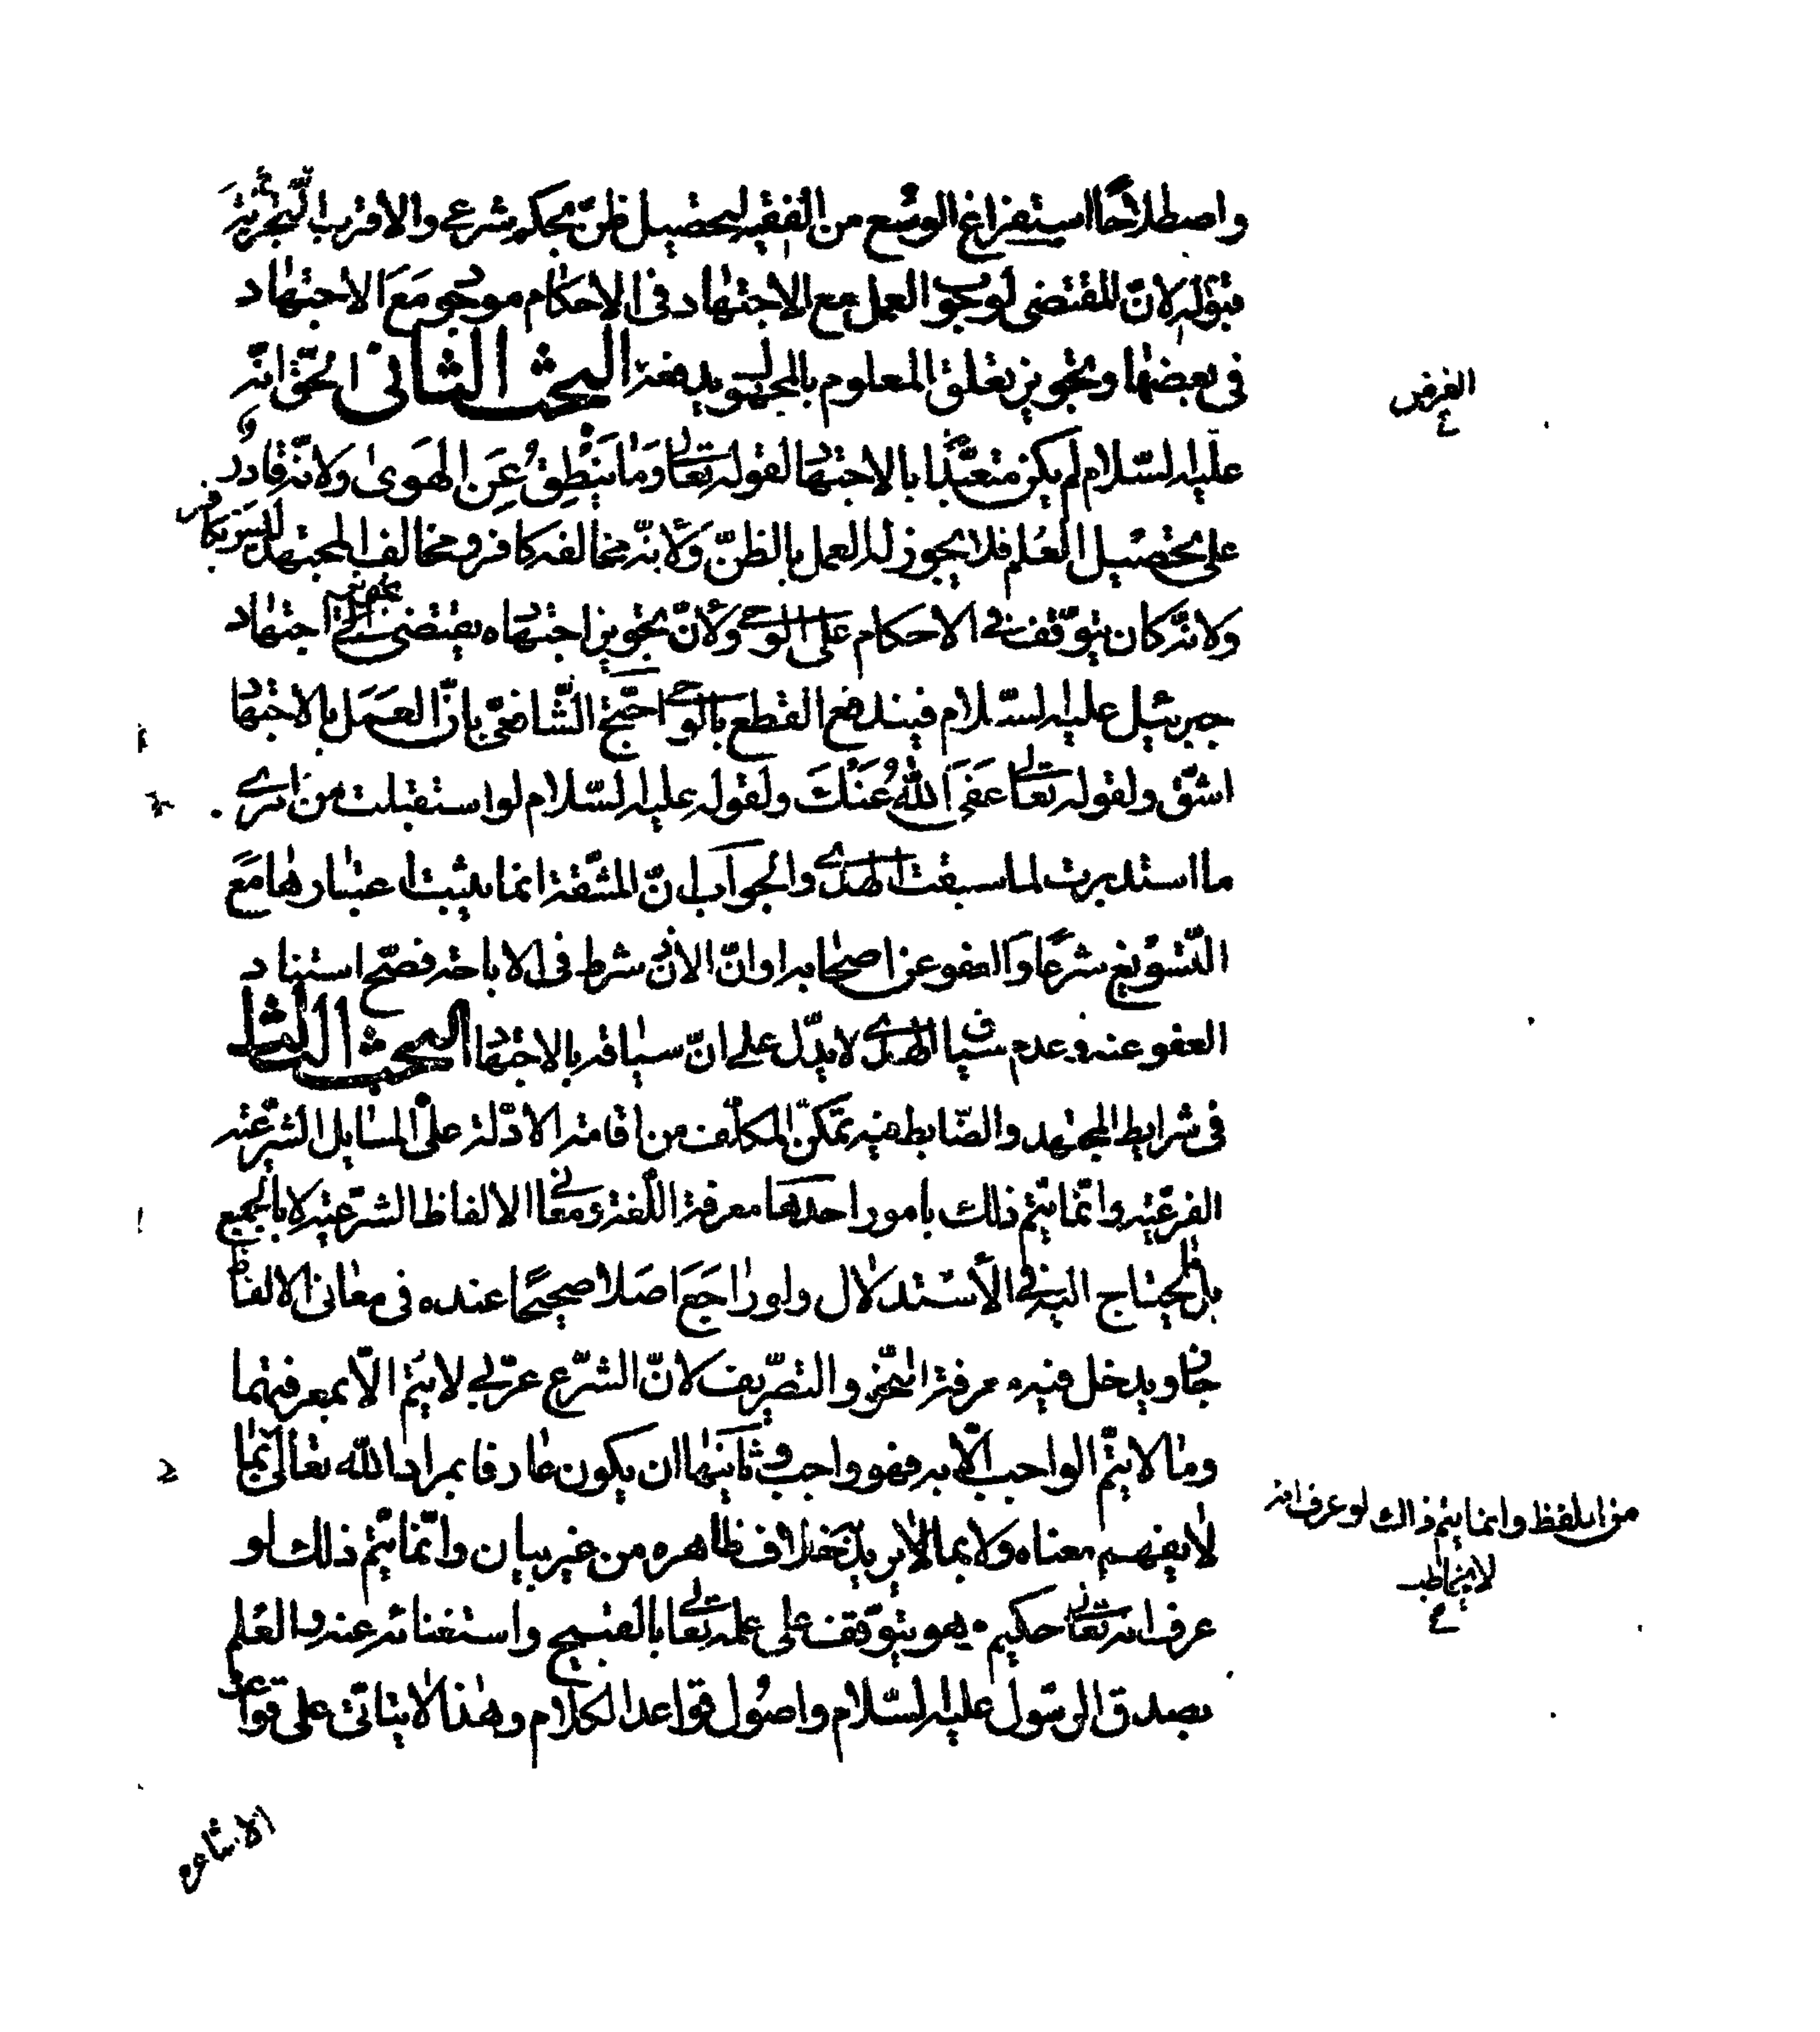 واصطلاحًا استفراغ الوسع من الفقيه لتحصيل ظنّ بحكم شرعي والاقرب انّه يتجزّى
بقوله لانّ المقتضى لوجوب العمل مع الاجتهاد في الاحكام موجود مَعَ الاجتهاد
في بعضها وتجويز تعلق المعلوم بالمجهول يدفعه البحث الثاني الحقّ انّه
الفرض
ع
عليه السّلام لم يكن متعبّدًا بالاجتهاد لقوله تعالى وَمَا يَنْطِقُ عَنِ الهَوىٰ ولانّه قادر
على تحصيل العلم فلا يجوز له العمل بالظنّ ولانّه مخالفه كافر ومخالف المجتهد ليس بكافر
ولانّه كان يتوقّف في الاحكام على الوحي ولانّ تجويز اجتهاده يقتضي تجويز اجتهاد
جبرئيل عليه السّلام فيندفع القطع بالوحي احتجّ الشّافعيّ بانّ العمَل بالاجتهاد
اشقّ ولقوله تعالى عَفَى اللهُ عَنْكَ ولقوله عليه السّلام لو استقبلت من امري
ما استدبرت لما سبقت الهدي والجواب انّ المشقّة انما يثبت اعتبارها مَعَ
التّسويغ شرعًا والعفو عن اصحابه او انّ الاذن شرط في الاباحة فصّح استناد
العفو عنه وعدم سياق الهدي لا يدّل على انّ سياقه بالاجتهاد البحث الثالث
في شرايط المجتهد والضّابط فيه تمكّن المكلّف من اقامة الادّلة على المسايل الشرعيّة
الفرعيّة وانّما يتّم ذلك بامور احدها معرفة اللّغة ومعاني الالفاظ الشرعيّة لا بالجميع
بل لما يحتاج اليه في الاستدلال ولو رٰاجَعَ اصلا صحيحًا عنده في معاني الالفاظ
جاز ويدخل فيه معرفة النّحو والتصّريف لانّ الشرّع عربّي لا يتّم الاّ بمعرفتهما
وما لا يتّم الواجب الاّ به فهو واجب وثانيها ان يكون عارفا بمراد الله تعالى بما
لا يفهم معناه ولا بما لا يريد خلاف ظاهره من غير بيان وانّما يتّم ذلك لو
من اللفظ وانما يتم ذالك لو عرف انه
لا يخاطب
ع
عرف انه تعالى حكيم وهو يتوّقف على علمه تعالى بالقبيح واستغنائه عنه والعلم
بصدق الرسول عليه السّلام واصول قواعد الكلام وهذا لا يتاتّى على قواعد
الاشاعره